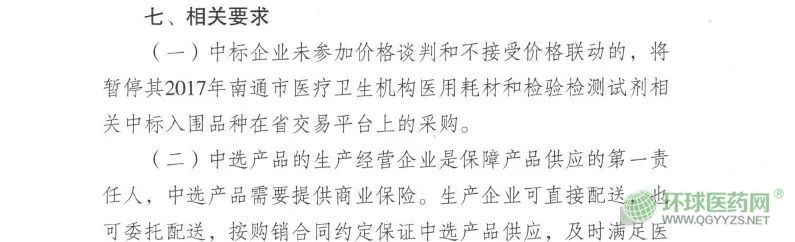 七、相关要求
（一）中标企业未参加价格谈判和不接受价格联动的，将
暂停其2017年南通市医疗卫生机构医用耗材和检验检测试剂相
关中标入围品种在省交易平台上的采购。
（二）中选产品的生产经营企业是保障产品供应的第一责
任人，中选产品需要提供商业保险。生产企业可直接配送，也
可委托配送，按购销合同约定保证中选产品供应，及时满足医
环球医药网®
WWW.QGYYZS.NET